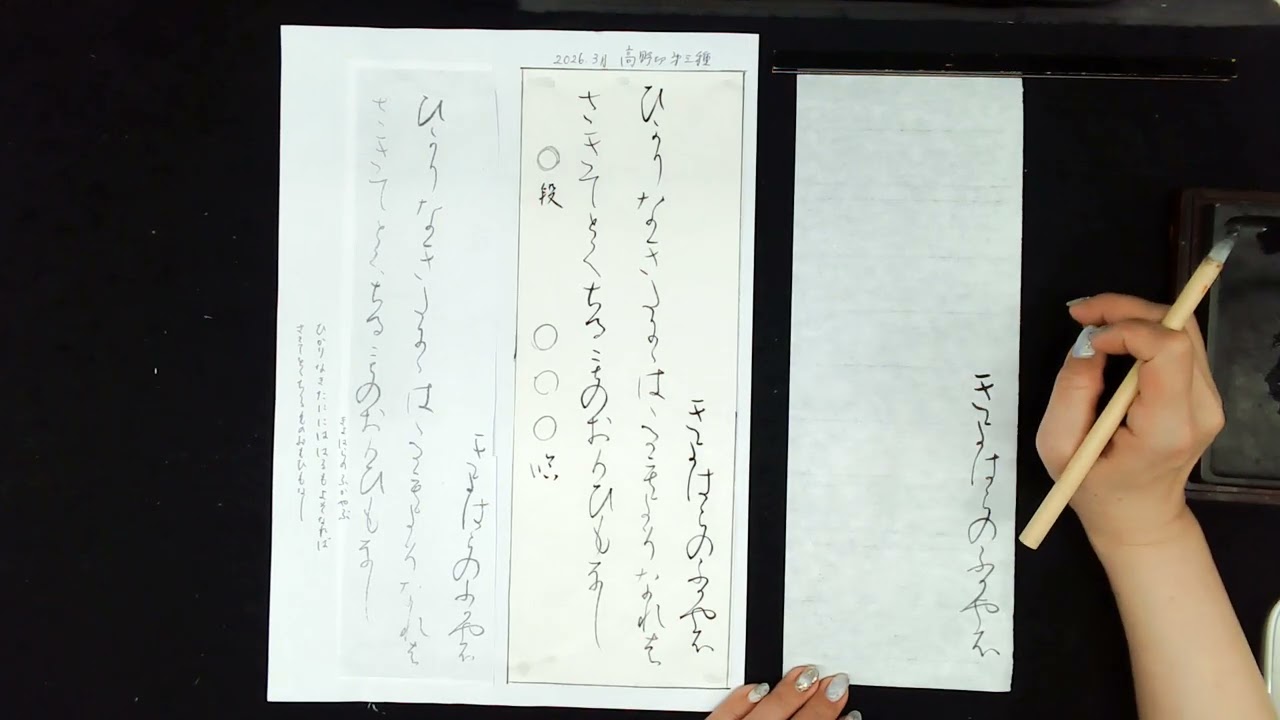 きよはらのふかやふ
2026.3月 高野切第三種
きよはらのふかやふ
ひかりなきたにゝはゝるもよそなれは
さきてとくちるものおもひもなし
○段
○○○臨
きよはらのふかやふ
ひかりなきたにゝはゝるもよそなれは
さきてとくちるものおもひもなし
きよはらのふかやぶ
ひかりなきたににははるもよそなれば
さきてとくちるものおもひもなし